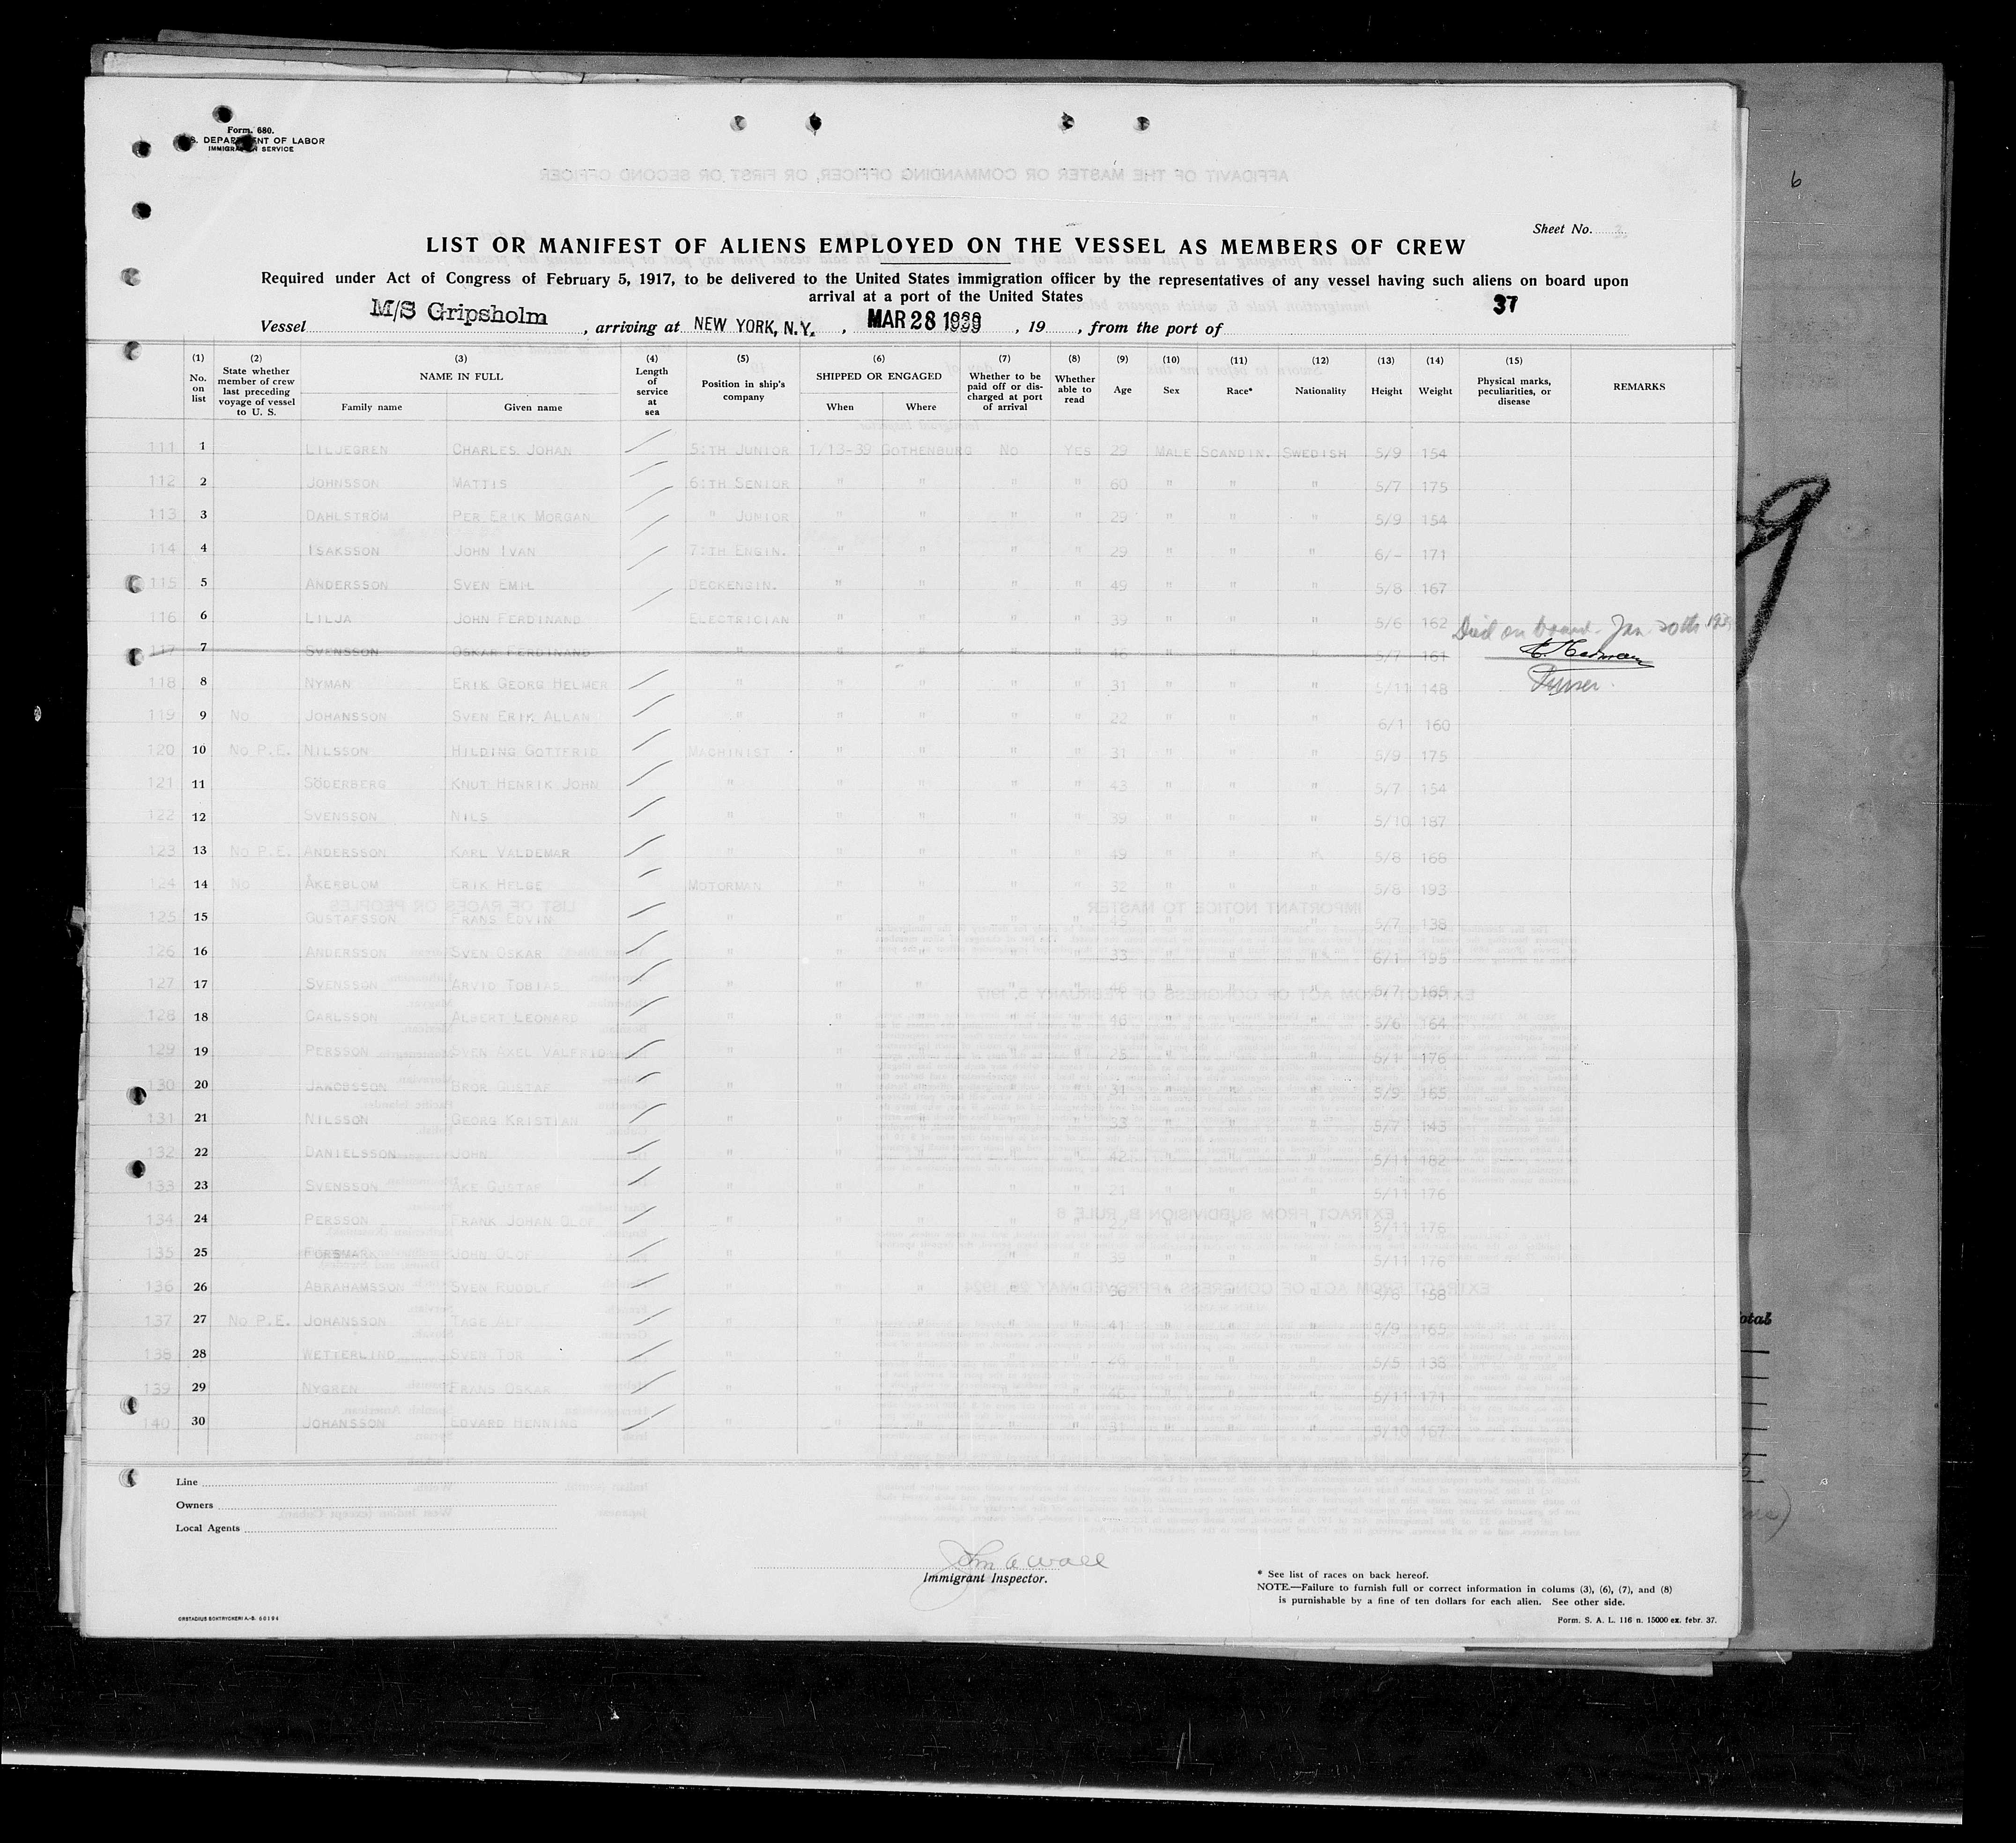 6
Form. 680.
S. DEPARTMENT OF LABOR
IMMIGRATION SERVICE
Sheet No. 3.
LIST OR MANIFEST OF ALIENS EMPLOYED ON THE VESSEL AS MEMBERS OF CREW
Required under Act of Congress of February 5, 1917, to be delivered to the United States immigration officer by the representatives of any vessel having such aliens on board upon
arrival at a port of the United States
37
Vessel M/S Gripsholm, arriving at NEW YORK, N.Y., MAR 28 1939, 19, from the port of
(1) No. on list (2) State whether member of crew last preceding voyage of vessel to U. S. (3) NAME IN FULL Family name Given name (4) Length of service at sea (5) Position in ship's company (6) SHIPPED OR ENGAGED When Where (7) Whether to be paid off or discharged at port of arrival (8) Whether able to read (9) Age (10) Sex (11) Race* (12) Nationality (13) Height (14) Weight (15) Physical marks, peculiarities, or disease REMARKS
111 1 LILJEGREN CHARLES JOHAN 5:TH JUNIOR 1/13-39 GOTHENBURG No YES 29 MALE SCANDIN. SWEDISH 5/9 154
112 2 JOHNSSON MATTIS 6:TH SENIOR " " " " 60 " " " 5/7 175
113 3 DAHLSTRÖM PER ERIK MORGAN " JUNIOR " " " " 29 " " " 5/9 154
114 4 ISAKSSON JOHN IVAN 7:TH ENGIN. " " " " 29 " " " 6/- 171
115 5 ANDERSSON SVEN EMIL DECKENGIN. " " " " 49 " " " 5/8 167
116 6 LILJA JOHN FERDINAND ELECTRICIAN " " " " 39 " " " 5/6 162 Died on board. Jan 20th 193
117 7 SVENSSON OSKAR FERDINAND " " " " " 46 " " " 5/7 161
118 8 NYMAN ERIK GEORG HELMER " " " " " 31 " " " 5/11 148 Purser.
119 9 No JOHANSSON SVEN ERIK ALLAN " " " " " 22 " " " 6/1 160
120 10 No P.E. NILSSON HILDING GOTTFRID MACHINIST " " " " 31 " " " 5/9 175
121 11 SÖDERBERG KNUT HENRIK JOHN " " " " " 43 " " " 5/7 154
122 12 SVENSSON NILS " " " " " 39 " " " 5/10 187
123 13 No P.E. ANDERSSON KARL VALDEMAR " " " " " 49 " " " 5/8 168
124 14 No ÅKERBLOM ERIK HELGE MOTORMAN " " " " 32 " " " 5/8 193
125 15 GUSTAFSSON FRANS EDVIN " " " " " 45 " " " 5/7 138
126 16 ANDERSSON SVEN OSKAR " " " " " 33 " " " 6/1 195
127 17 SVENSSON ARVID TOBIAS " " " " " 46 " " " 5/7 165
128 18 CARLSSON ALBERT LEONARD " " " " " 46 " " " 5/6 164
129 19 PERSSON SVEN AXEL VALFRID " " " " " 25 " " " 6/1 176
130 20 JAKOBSSON BROR GUSTAF " " " " " 31 " " " 5/9 165
131 21 NILSSON GEORG KRISTIAN " " " " " 33 " " " 5/7 143
132 22 DANIELSSON JOHN " " " " " 42 " " " 5/11 182
133 23 SVENSSON ÅKE GUSTAF " " " " " 21 " " " 5/11 176
134 24 PERSSON FRANK JOHAN OLOF " " " " " 22 " " " 5/11 176
135 25 FORSMARK JOHN OLOF " " " " " 39 " " " 5/11 176
136 26 ABRAHAMSSON SVEN RUDOLF " " " " " 36 " " " 5/8 158
137 27 No P.E. JOHANSSON TAGE ALF " " " " " 41 " " " 5/9 165
138 28 WETTERLIND SVEN TOR " " " " " " " " 5/5 138
139 29 NYGREN FRANS OSKAR " " " " " 46 " " " 5/11 171
140 30 JOHANSSON EDVARD HENNING " " " " " 31 " " " 5/10 167
Line
Owners
Local Agents
John A Wall
Immigrant Inspector.
* See list of races on back hereof.
NOTE.—Failure to furnish full or correct information in colums (3), (6), (7), and (8)
is purnishable by a fine of ten dollars for each alien. See other side.
ORSTADIUS BOKTRYCKERI A.-B. 66194
Form. S. A. L. 116 n. 15000 ex. febr. 37.
otal